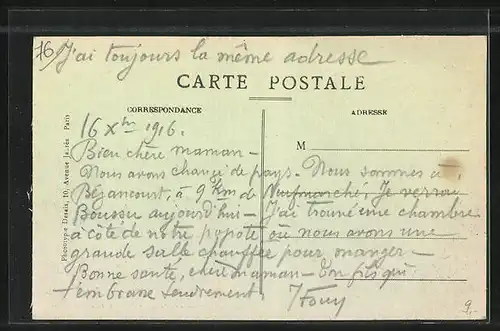 76
J'ai toujours la même adresse
CARTE POSTALE
CORRESPONDANCE
ADRESSE
16 Xbre 1916.
M
Bien chère maman -
Nous avons changé de pays. Nous sommes à
Béjancourt, à 9 km de Neufmarché. Je verrai
Boussu aujourd'hui - J'ai trouvé une chambre
à côté de notre popote où nous avons une
grande salle chauffée pour manger -
Bonne santé, chère maman - Ton fils qui
t'embrasse tendrement
Phototypie Desaix, Avenue Paris
9.-